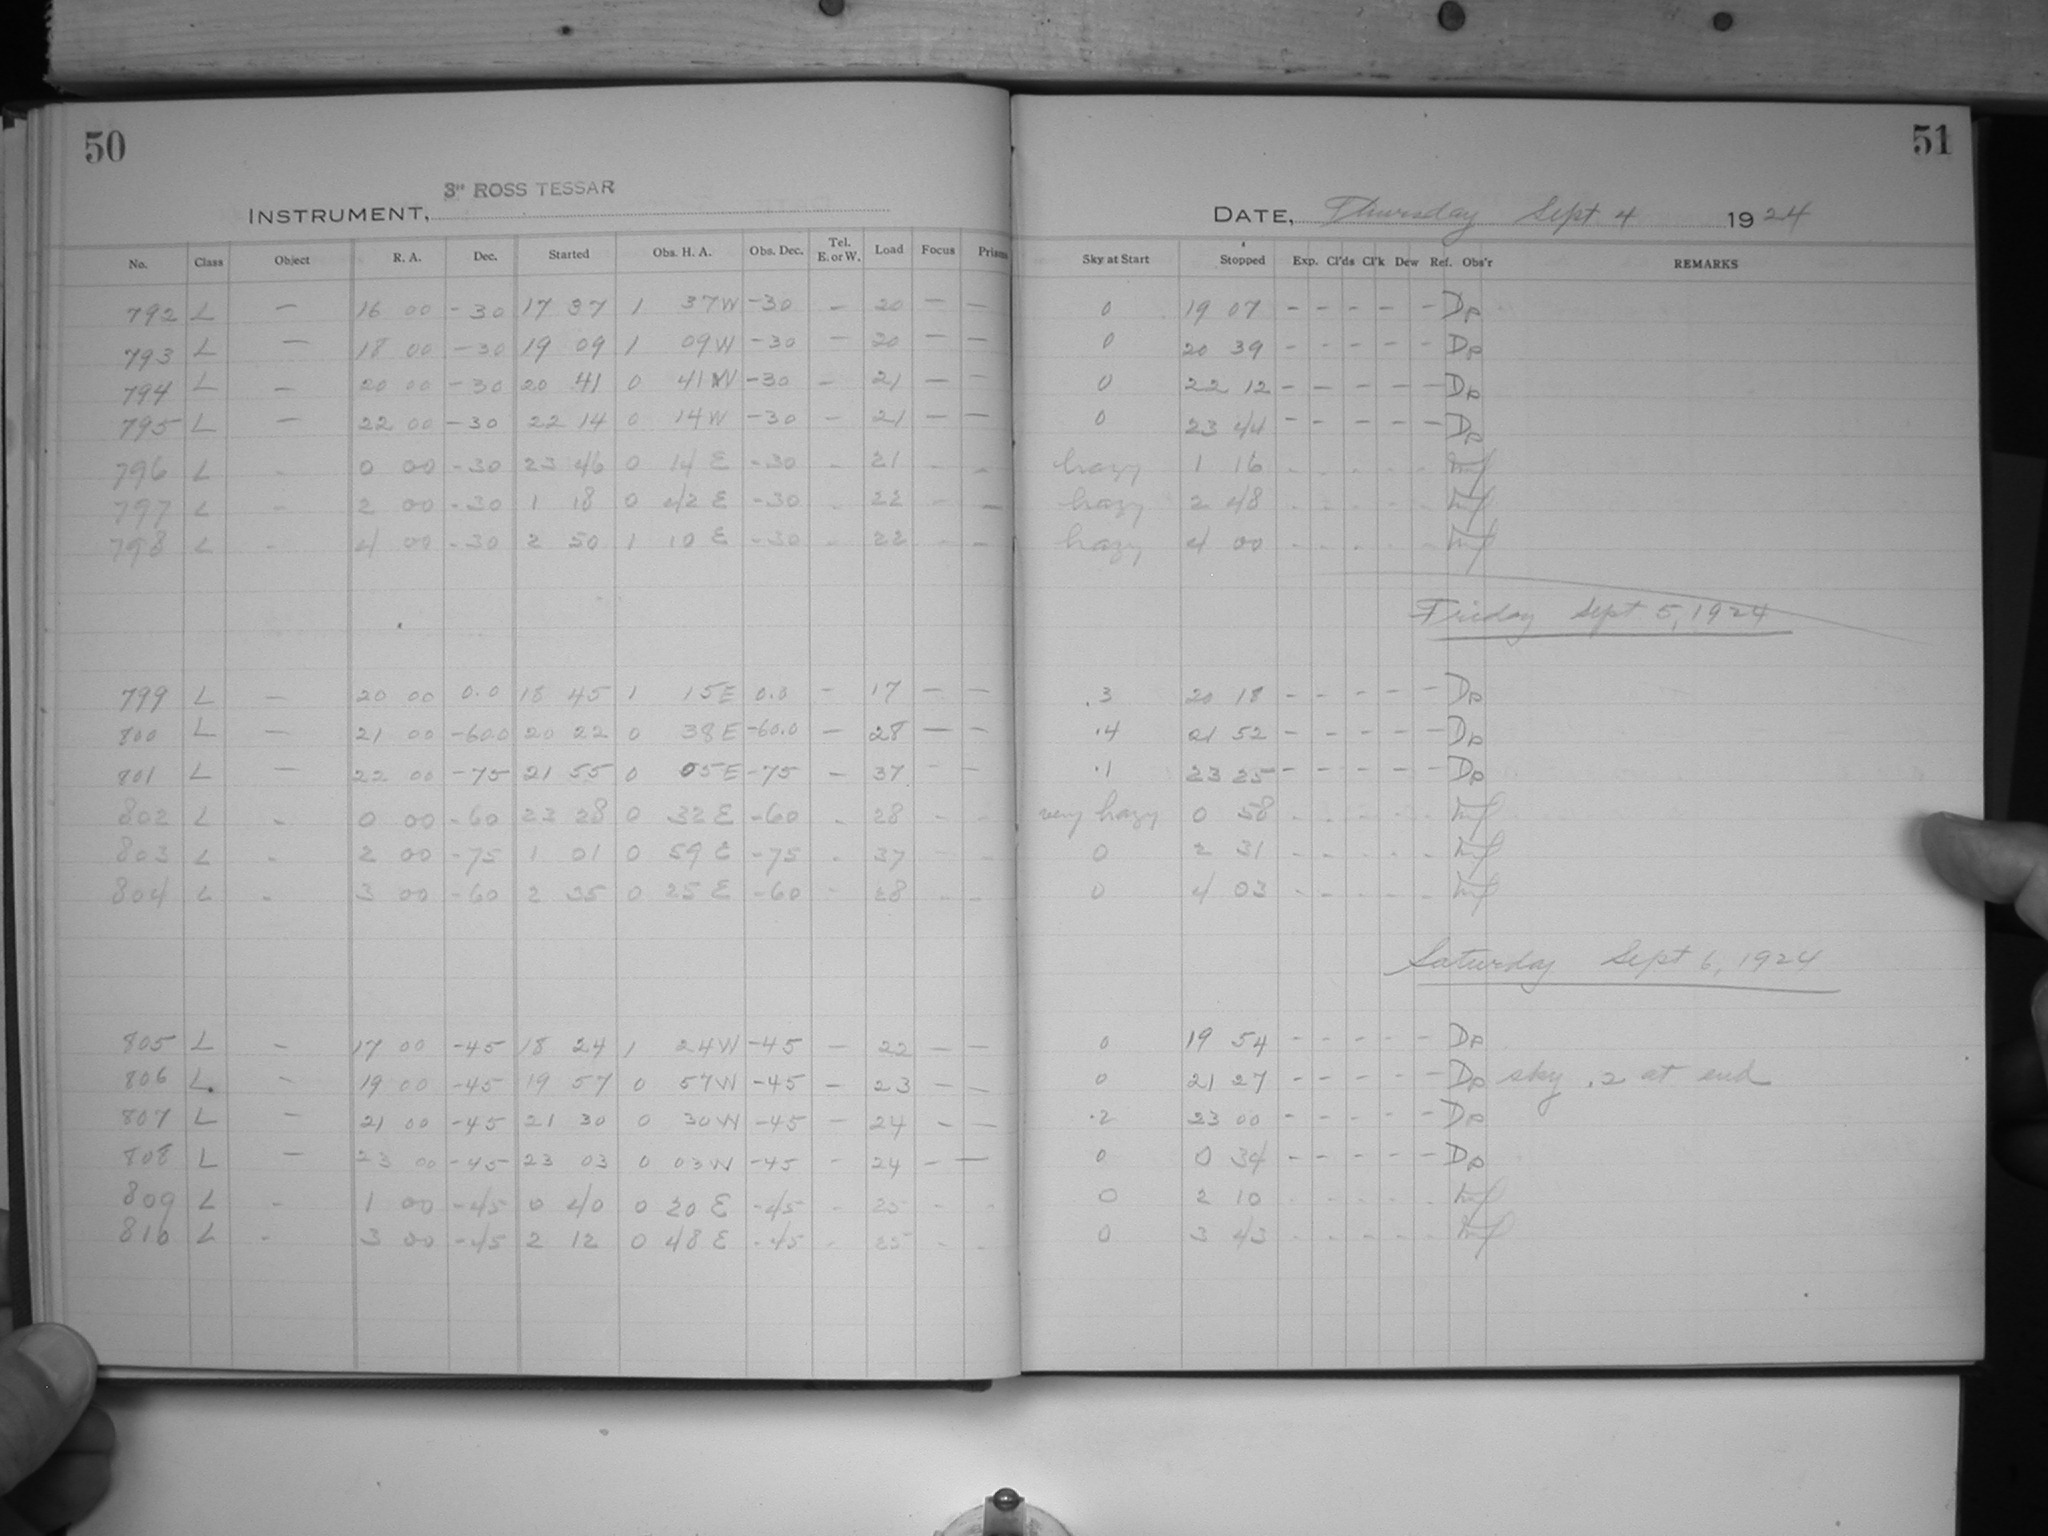 50
3" ROSS TESSAR
INSTRUMENT,
No. Class Object R. A. Dec. Started Obs. H. A. Obs. Dec. Tel. E. or W. Load Focus Prism
792 L — 16 00 -30 17 37 1 37W -30 — 20 — —
793 L — 18 00 -30 19 09 1 09W -30 — 20 — —
794 L — 20 00 -30 20 41 0 41W -30 — 21 — —
795 L — 22 00 -30 22 14 0 14W -30 — 21 — —
796 L - 0 00 -30 23 46 0 14 E -30 - 21 - -
797 L - 2 00 -30 1 18 0 42 E -30 - 22 - -
798 L - 4 00 -30 2 50 1 10 E -30 - 22 - -
799 L — 20 00 0.0 18 45 1 15E 0.0 — 17 — —
800 L — 21 00 -60.0 20 22 0 38E -60.0 — 28 — —
801 L — 22 00 -75 21 55 0 05E -75 — 37 — —
802 L - 0 00 -60 23 28 0 32 E -60 - 28 - -
803 L - 2 00 -75 1 01 0 59 E -75 - 37 - -
804 L - 3 00 -60 2 35 0 25 E -60 - 28 - -
805 L — 17 00 -45 18 24 1 24W -45 — 22 — —
806 L — 19 00 -45 19 57 0 57W -45 — 23 — —
807 L — 21 00 -45 21 30 0 30W -45 — 24 — —
808 L — 23 00 -45 23 03 0 03W -45 — 24 — —
809 L - 1 00 -45 0 40 0 20 E -45 - 25 - -
810 L - 3 00 -45 2 12 0 48 E -45 - 25 - -
51
DATE, Thursday Sept 4 1924
Sky at Start Stopped Exp. Cl'ds Cl'k Dew Ref. Obs'r REMARKS
0 19 07 - - - - - Dp
0 20 39 - - - - - Dp
0 22 12 - - - - - Dp
0 23 44 - - - - - Dp
hazy 1 16 - - - - -
hazy 2 48 - - - - -
hazy 4 00 - - - - -
Friday Sept 5, 1924
.3 20 18 - - - - - Dp
.4 21 52 - - - - - Dp
.1 23 25 - - - - - Dp
very hazy 0 58 - - - - -
0 2 31 - - - - -
0 4 03 - - - - -
Saturday Sept 6, 1924
0 19 54 - - - - - Dp
0 21 27 - - - - - Dp sky .2 at end
.2 23 00 - - - - - Dp
0 0 34 - - - - - Dp
0 2 10 - - - - -
0 3 43 - - - - -